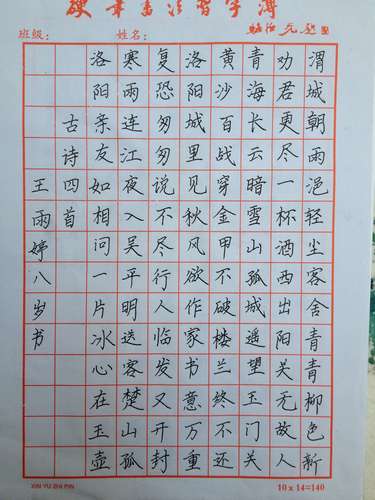 硬筆書法習字簿
班級: 姓名:
渭城朝雨浥轻尘客舍青青柳色新
劝君更尽一杯酒西出阳关无故人
青海长云暗雪山孤城遥望玉门关
黄沙百战穿金甲不破楼兰终不还
洛阳城里见秋风欲作家书意万重
复恐匆匆说不尽行人临发又开封
寒雨连江夜入吴平明送客楚山孤
洛阳亲友如相问一片冰心在玉壶
古诗四首
王雨婷八岁书
XIN YU ZHI PIN
10 x 14=140